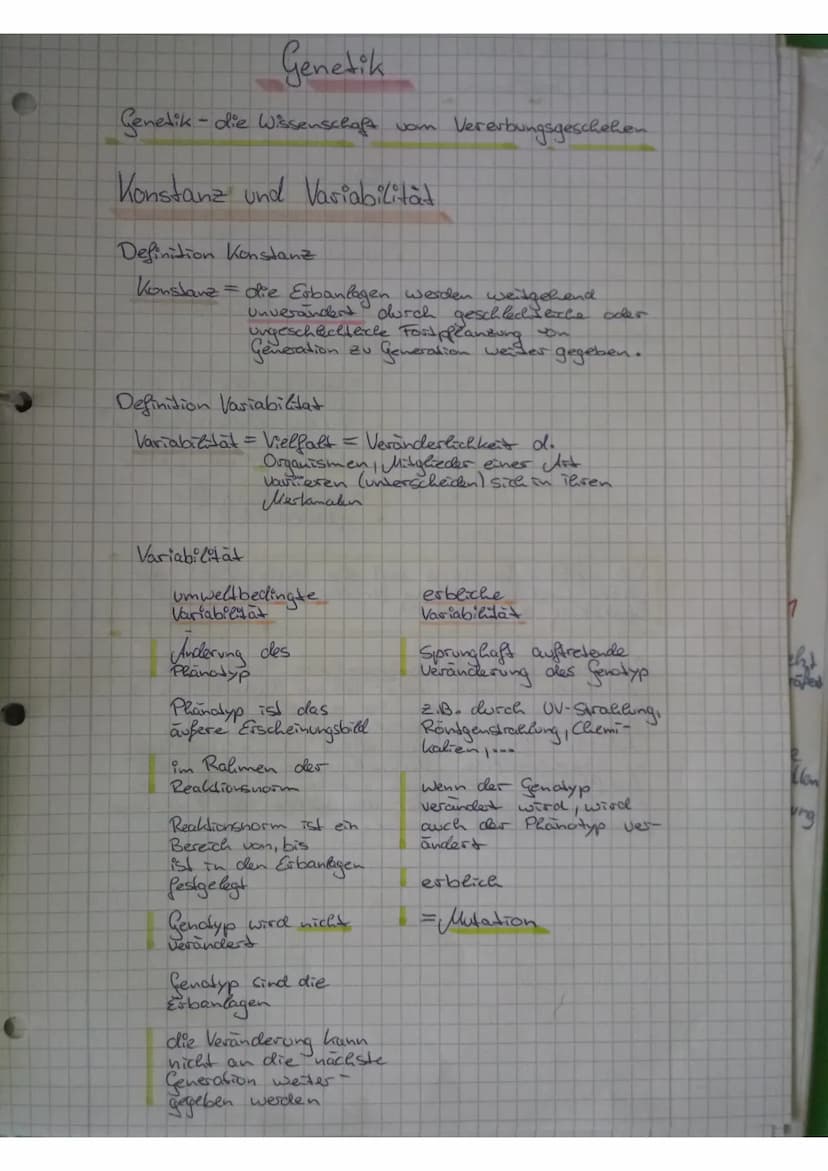 Genetik
Genetik - die Wissenschaft vom Vererbungsgeschehen
Konstanz und Variabilität
Definition Konstanz
Konstanz = die Erbanlagen werden weitgehend
unverändert durch geschlechtliche oder
ungeschlechtliche Fortpflanzung von
Generation zu Generation weiter gegeben.
Definition Variabilität
Variabilität = Vielfalt = Veränderlichkeit d.
Organismen, Mitglieder einer Art
variieren (unterscheiden) sich in ihren
Merkmalen
Variabilität
umweltbedingte
Variabilität
Änderung des
Phänotyp
Phänotyp ist das
äußere Erscheinungsbild
im Rahmen der
Reaktionsnorm
Reaktionsnorm ist ein
Bereich von, bis
ist in den Erbanlagen
festgelegt
Genotyp wird nicht
verändert
Genotyp sind die
Erbanlagen
die Veränderung kann
nicht an die nächste
Generation weiter-
gegeben werden
erbliche
Variabilität
Sprunghaft auftretende
Veränderung des Genotyp
z.B. durch UV-Strahlung,
Röntgenstrahlung, Chemi-
kalien,...
wenn der Genotyp
verändert wird, wird
auch der Phänotyp ver-
ändert
erblich
= Mutation